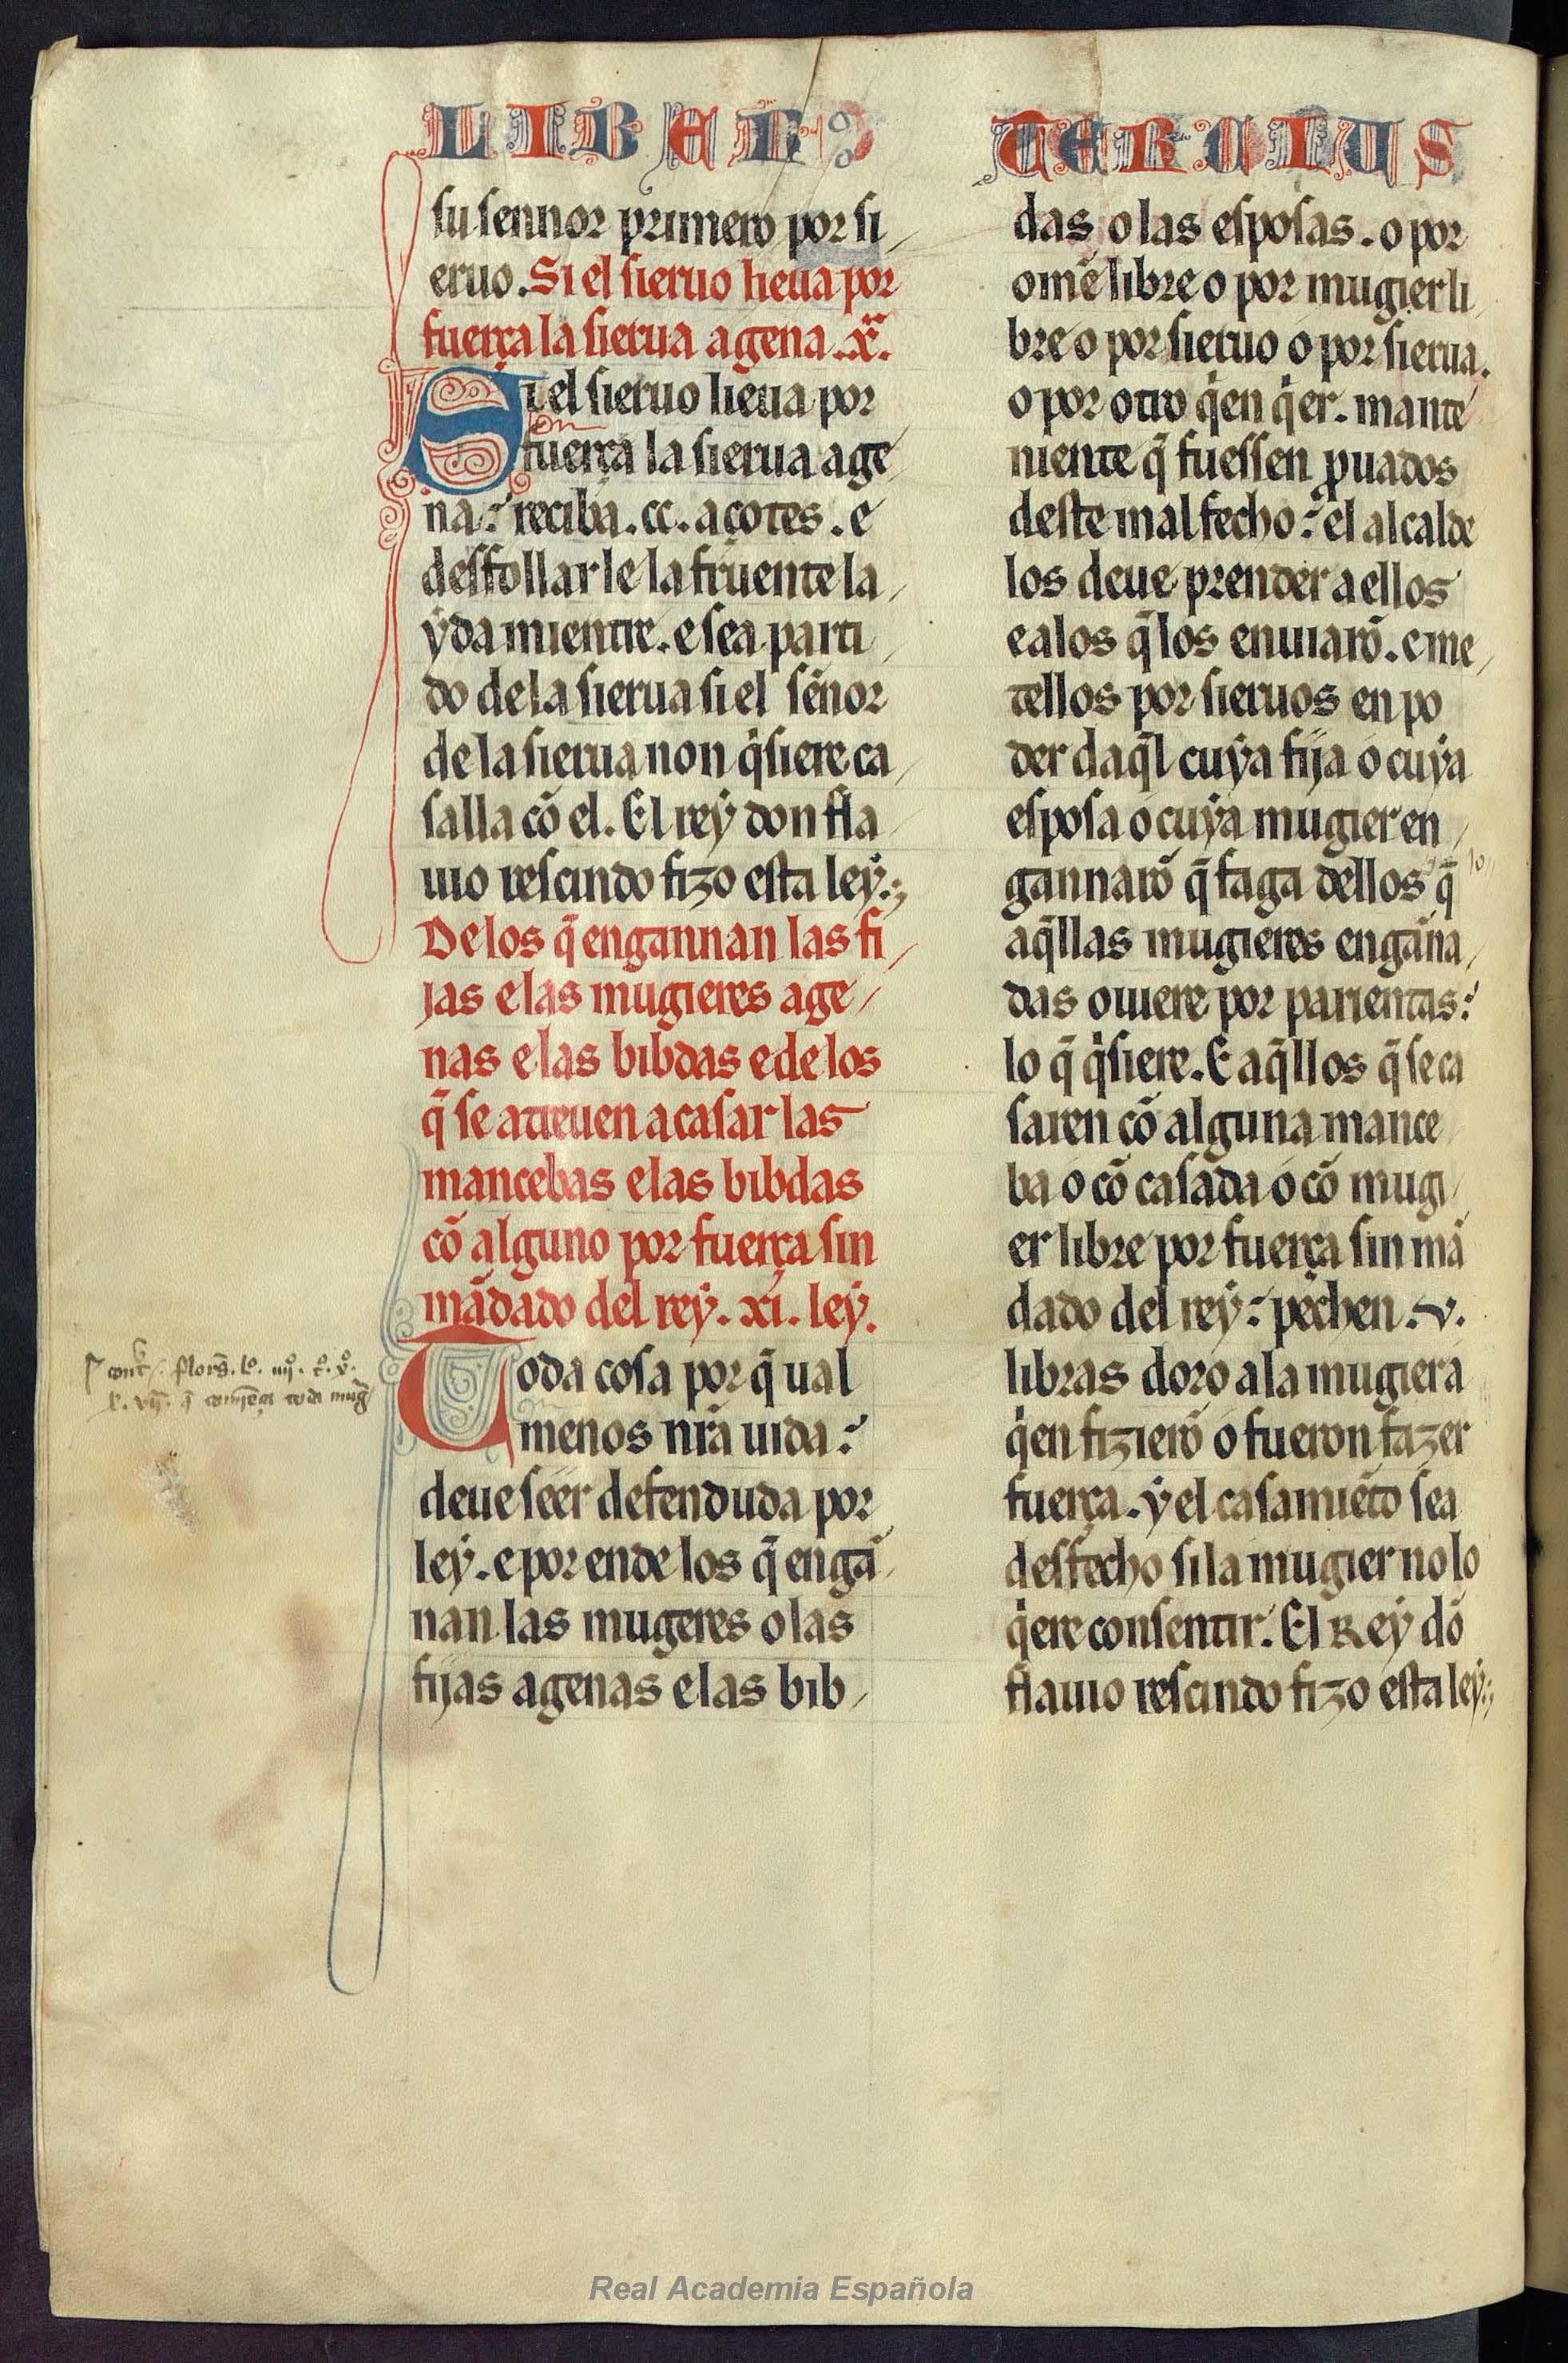 LIBER
TERCIUS
su sennor primero por si/
eruo. Si el sieruo lieua por
fuerça la sierua agena .x.ª
Si el sieruo lieua por
fuerça la sierua age
na: reciba .cc. açotes . e
desfollarle la fruente la/
ẏda mientre. e sea parti/
do de la sierua si el sẽnor
de la sierua non q̇siere ca/
salla cõ el. El reẏ don fla/
uio rescindo fizo esta leẏ.
De los q̃ engannan las fi/
jas e las mugieres age/
nas e las bibdas e de los
q̃ se atreuen a casar las
mancebas e las bibdas
cõ alguno por fuerça sin
mãdado del reẏ. xi. leẏ.
Toda cosa por q̃ ual
menos nr̃a uida:
deue seer defenduda por
leẏ. e por ende los q̃ engã/
nan las mugeres o las
fijas agenas e las bib/
das o las esposas. o por
omẽ libre o por mugier li/
bre o por sieruo o por sierua.
o por otro q̇en q̇er. mante
niente q̃ fuessen prouados
deste mal fecho: el alcalde
los deue prender a ellos
e a los q̃ los enuiarõ. e me/
tellos por sieruos en po
der daq̃l cuẏa fija o cuẏa
esposa o cuẏa mugier en/
gannarõ q̃ faga dellos q̃ lo
aq̃llas mugieres engãna/
das ouiere por parientas:
lo q̃ q̇siere. E aq̃llos q̃ se ca
saren cõ alguna mance/
ba o cõ casada o cõ mugi/
er libre por fuerça sin mã
dado del reẏ: pechen .v.
libras doro a la mugier a
q̇en fizierõ o fueron fazer
fuerça. ẏ el casamiẽto sea
desfecho si la mugier no lo
q̇ere consentir. El Reẏ dõ
flauio rescindo fizo esta leẏ.
Real Academia Española